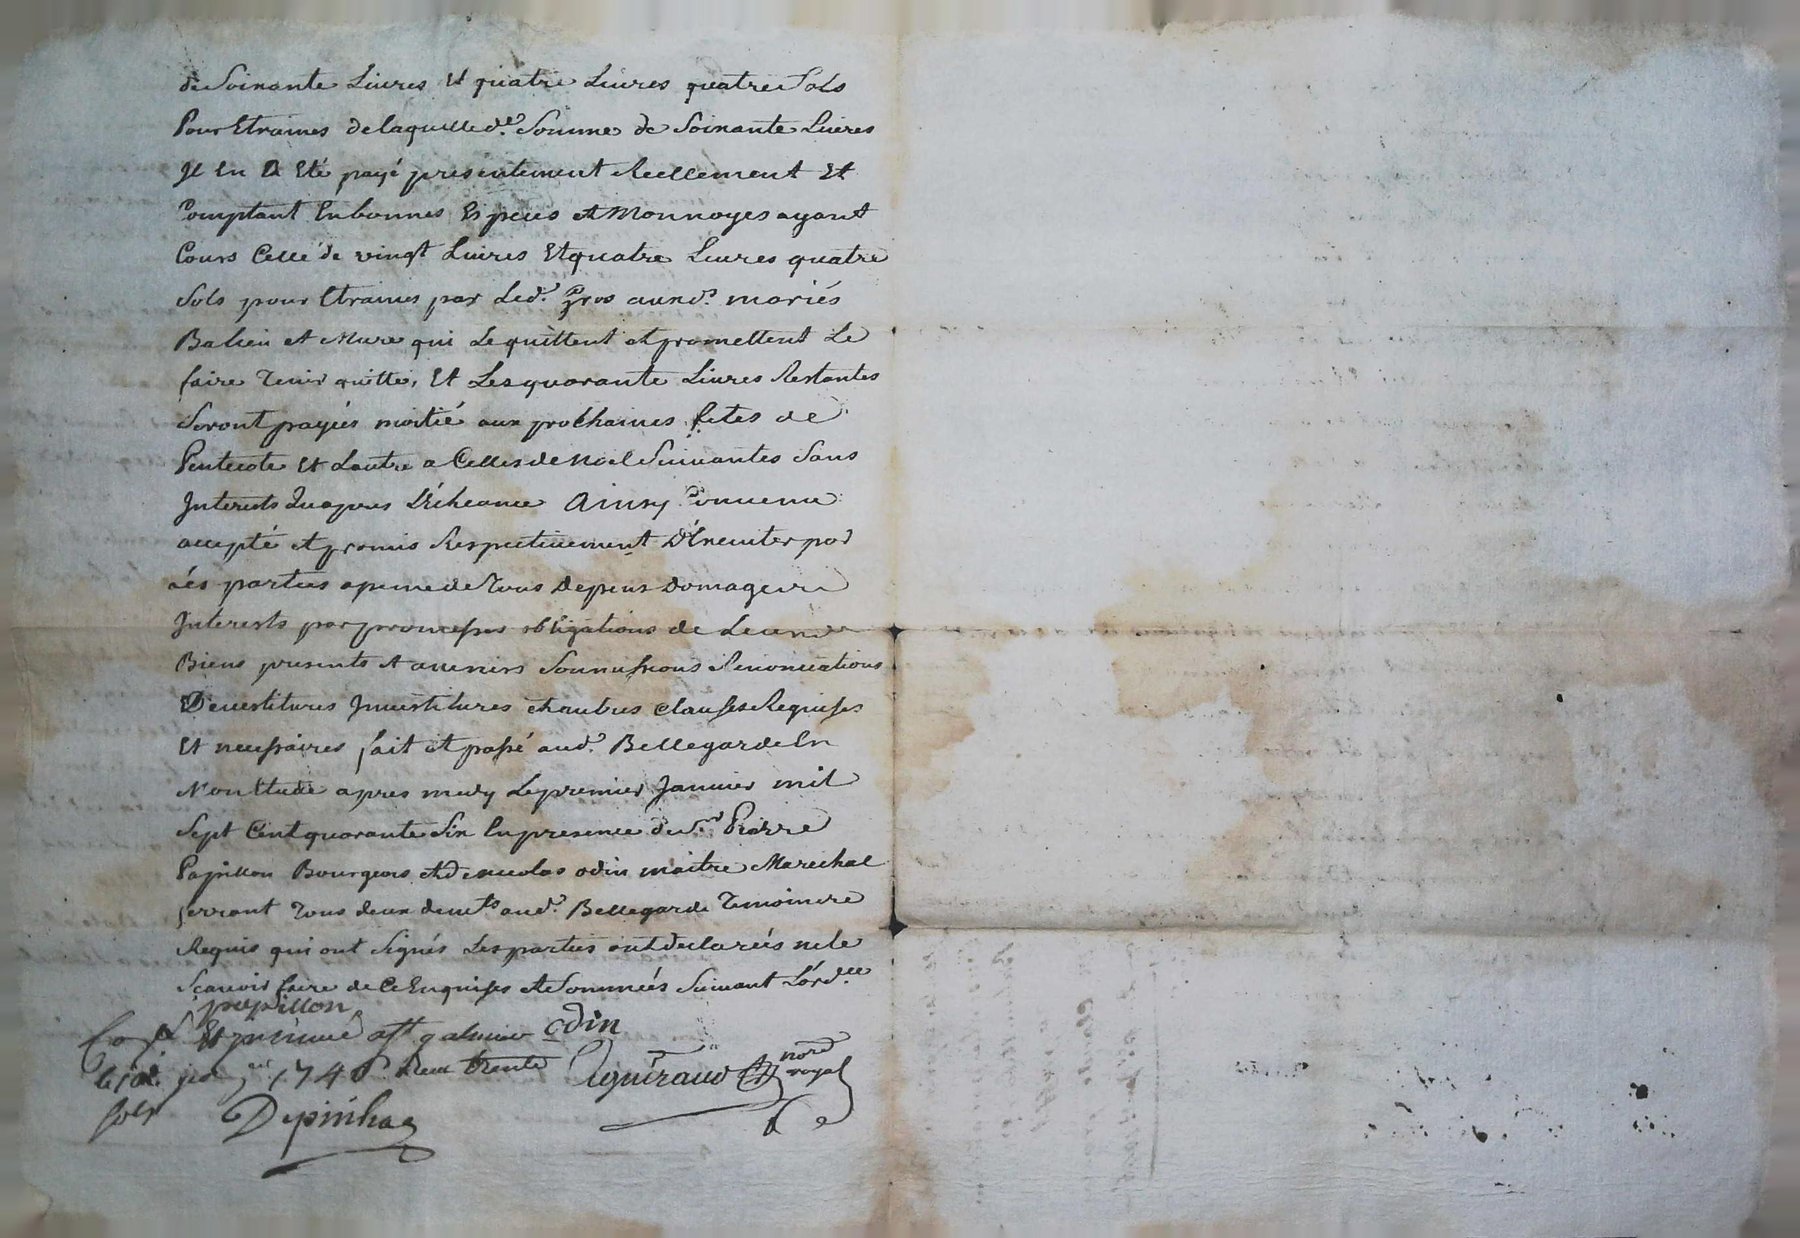 de Soixante Livres Et quatre Livres quatre Sols
Pour Etraines de laquelle de. Somme de Soixante Livres
Il En A Eté payé presentement Reellement Et
Comptant En bonnes Especes et Monnoyes ayant
Cours Celle de vingt Livres Et quatre Livres quatre
Sols pour Etraines par Led. Gros auxd. mariés
Balien et Mure qui Le quittent et promettent Le
faire Tenir quitte, Et Les quarante Livres Restantes
Seront payées moitié aux prochaines fetes de
Pentecote Et L'autre a Celles de Noel Suivantes Sans
Interests Qu'apres L'écheance Ainsy Convenu
accepté et promis Respectivement D'Executer par
Les parties a peine de Tous Depens Domages
Interests par promesses obligations de Leurs
Biens presents et avenirs Soumissions Renonciations
Devestitures Investitures et autres clauses Requises
Et necessaires fait et passé aud. Bellegarde En
Mon Etude apres midy Le premier Janvier mil
Sept Cent quarante Six En presence de Sr. Pierre
Papillon Bourgeois et de nicolas odin maitre Marechal
ferrant Tous deux demts aud. Bellegarde Temoins
Requis qui ont Signés Les parties ont declarées ne le
Scavoir faire de Ce Enquises et Sommées Suivant L'ord.ce
papillon
odin
1746 Reçu trente
sols
Depinhac
Eyguiraud nore
royal